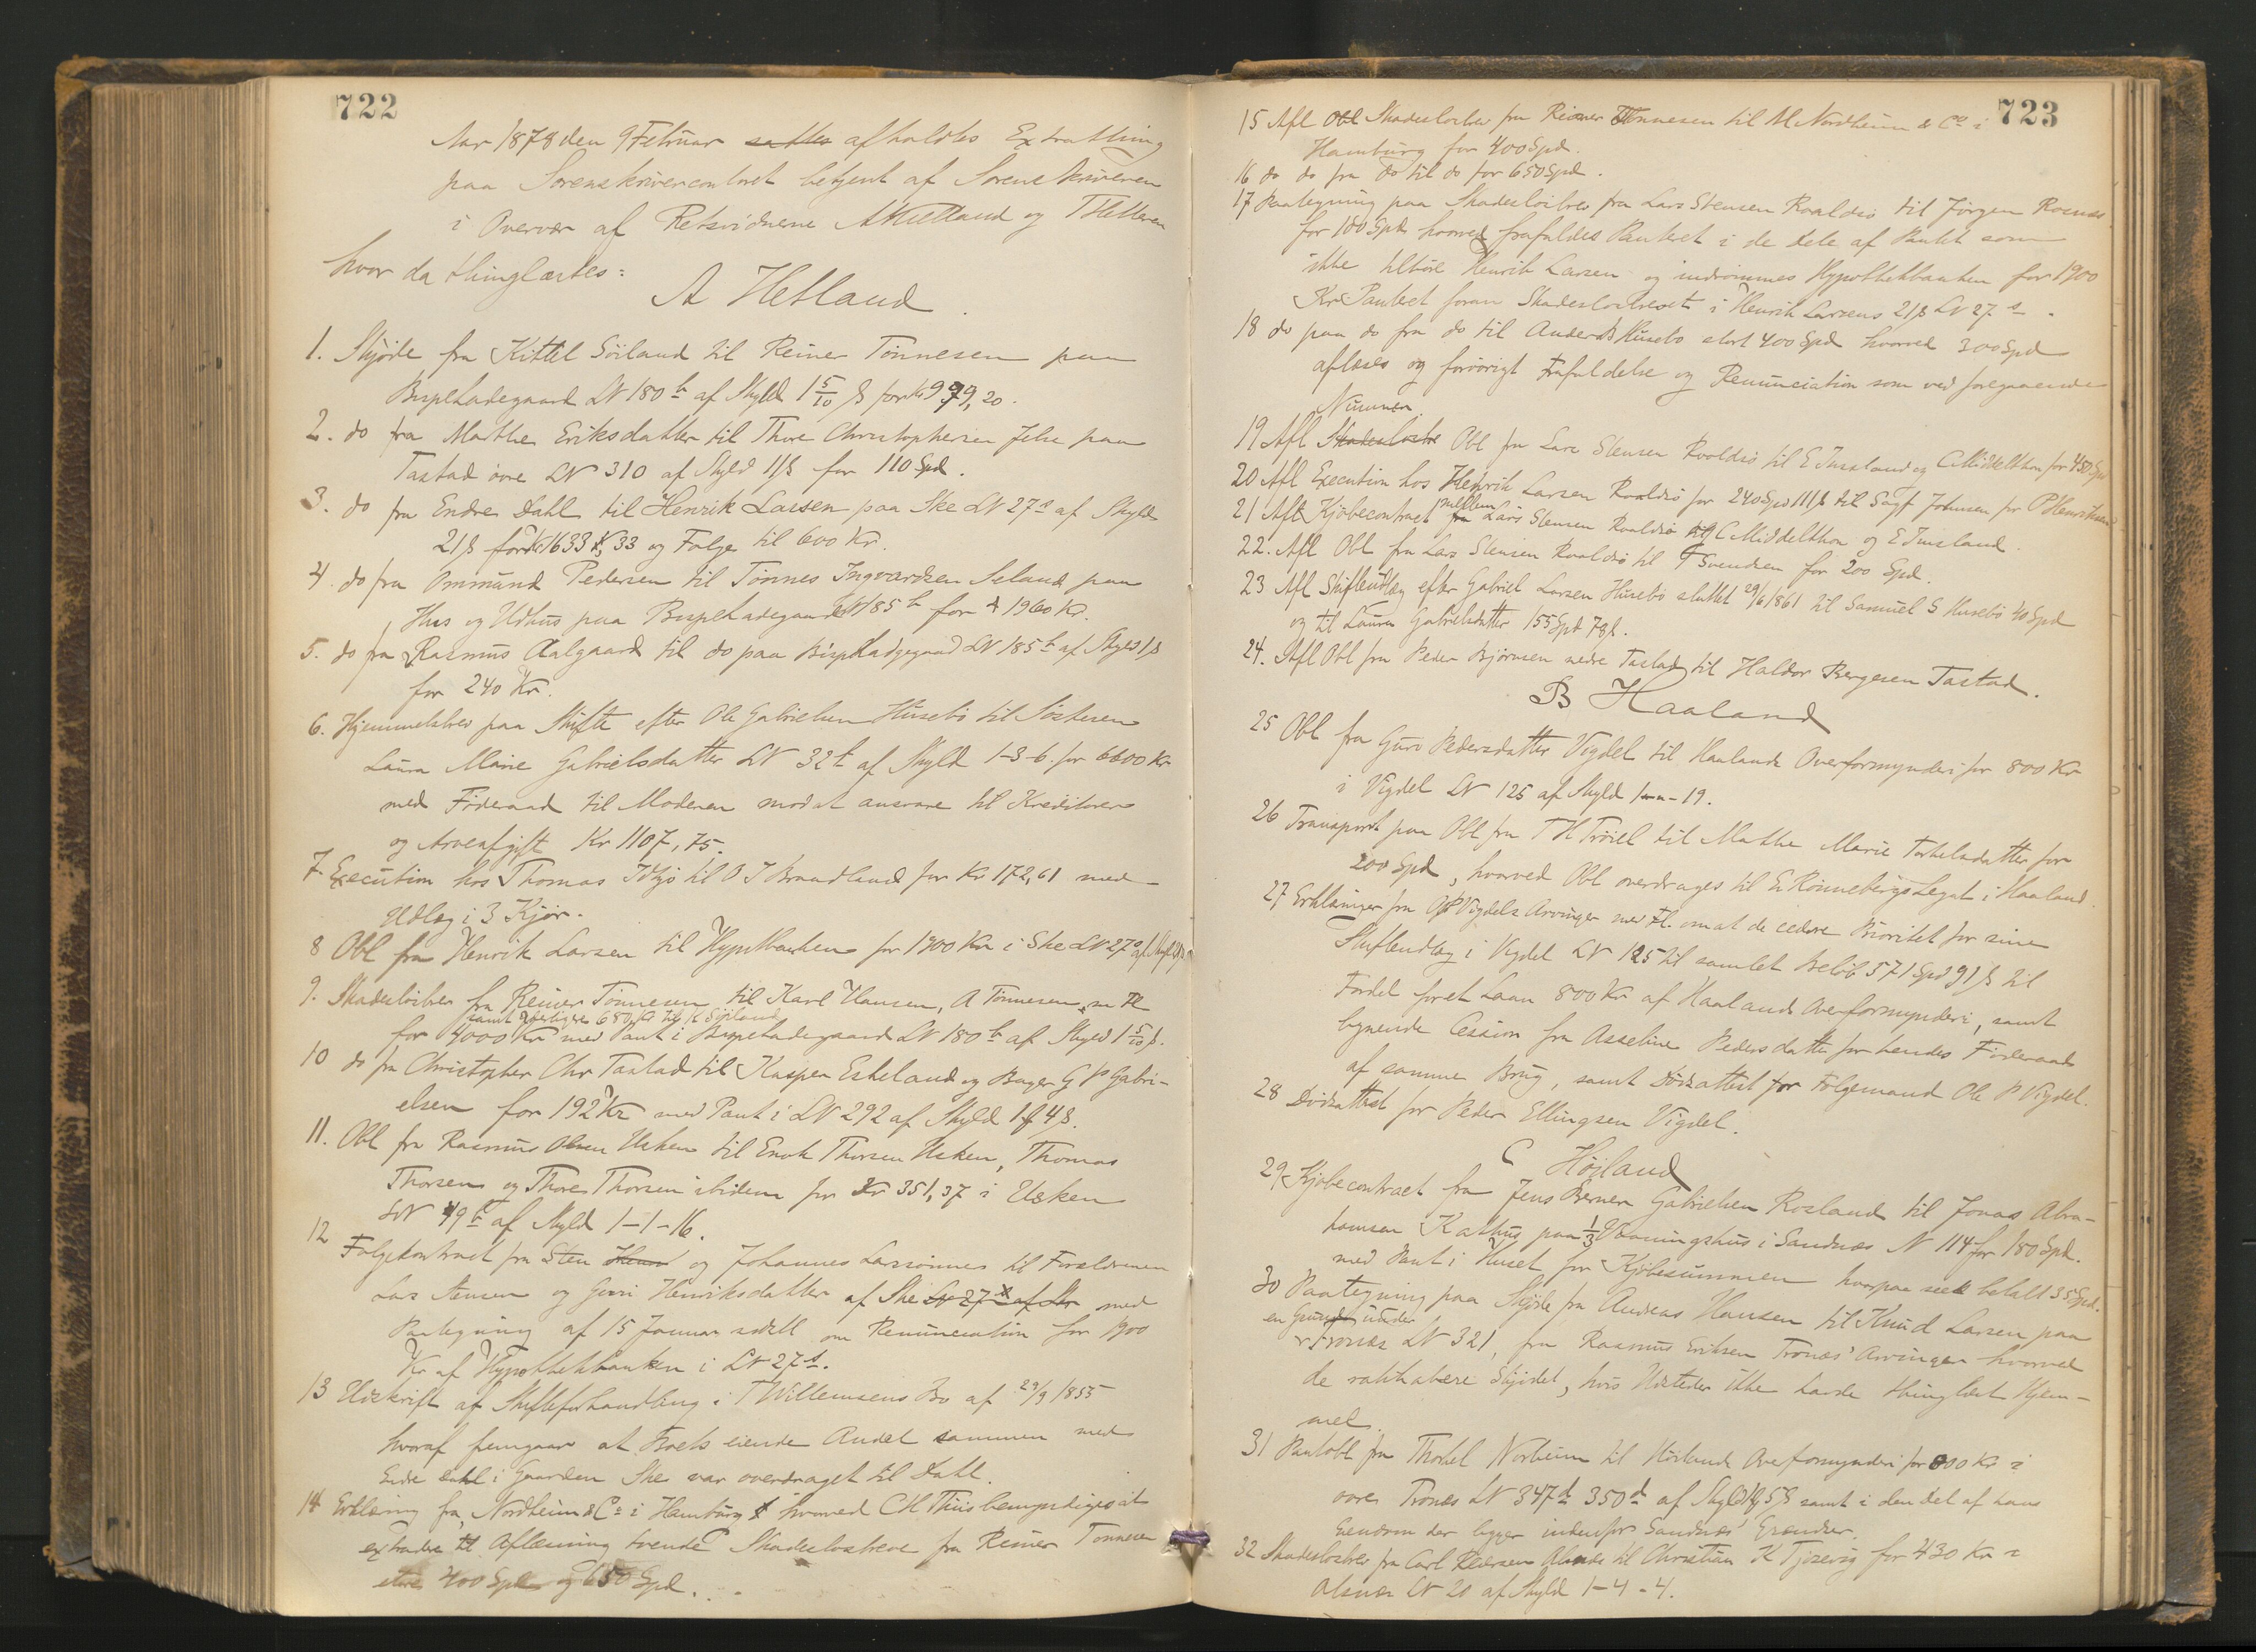 722
Aar 1878 den 9 Februar sattes afholdtes Extrathing
paa Sorenskrivercontoret betjent af Sorenskriveren
i Overvær af Retsvidnerne A Hetland og T Helleren
hvor da thinglæstes:
A Hetland
1. Skjøde fra Kittel Söiland til Reiner Tönnesen paa
Bispeladegaard LN 180 b af Skyld 1 5/10 ß for Kr 979,20.
2. do fra Marthe Eriksdatter til Thore Christophersen Jelse paa
Tastad övre LN 310 af Skyld 11 ß for 110 Spd.
3. do fra Endre Dahl til Henrik Larsen paa Ske LN 27 a af Skyld
21 ß for Kr 1633,33 og Følge til 600 Kr.
4. do fra Ommund Pedersen til Tönnes Ingvardsen Seland paa
Hus og Udhus paa Bispeladegaard LN 185 b for 1960 Kr.
5. do fra Rasmus Aalgaard til do paa Bispeladegaard LN 185 b af Skyld 1 ß
for 240 Kr.
6. Hjemmelsbrev paa Skifte efter Ole Gabrielsen Husebö til Söstersen
Laura Marie Gabrielsdatter LN 32 b af Skyld 1-3-6 for 6600 Kr
med Föderaad til Moderen mod at ansvare til Kreditorer
og Arveafgift Kr 1107,75.
7 Execution hos Thomas Idsjö til O J Braadland for Kr 172,61 med
Udlæg i 3 Kjör.
8 Obl fra Henrik Larsen til Hypothbanken for 1900 Kr i Ske LN 27 a af Skyld 21 ß
9. Skadeslösbrev fra Reiner Tönnesen til Karl Hansen, A Tönnesen m Fl
samt yderligere 680 Kr til K Söiland
for 4000 Kr med Pant i Bispeladegaard LN 180 b af Skyld 1 5/10 ß.
10 do fra Christopher Chr Tastad til Kasper Eskeland og Bager G P Gabri-
elsen for 192 Kr med Pant i LN 292 af Skyld 1 4 ß.
11. Obl fra Rasmus Olsen Usken til Enok Thorsen Usken, Thomas
Thorsen og Thore Thorsen ibidem for Kr 351,37 i Usken
LN 49 b af Skyld 1-1-16.
12 Følgekontract fra Sten og Johannes Larssönner til Forældrene
Lars Stensen og Guri Henriksdatter af Ske LN 27 a af Ske med
Paategning af 15 Januar sidstl om Renunciation for 1900
Kr af Hypothekbanken i LN 27 a.
13 Udskrift af Skifteforhandling i T Willemsens Bo af 29/9 1855
hvoraf fremgaar at Boets eiende Andel sammen med
Endre Dahl i Gaarden Ske var overdraget til Dahl.
14 Erklæring fra Nordheim & Co i Hamburg hvorved C M Thiis bemyndiges at
extradere til Aflæsning tvende Skadeslosbreve fra Reiner Tonnesen
store 400 Spd og 650 Spd.
723
15 Afl Obl Skadeslosbrev fra Reiner Tönnesen til M Nordheim & Co i
Hamburg for 400 Spd.
16 do do fra do til do for 650 Spd.
17 Paategning paa Skadeslösbrev fra Lars Stensen Roaldsö til Jörgen Rosnæs
for 100 Spd hvorved frafaldes Panteret i de Dele af Pantet som
ikke tilhöre Henrik Larsen og indrömmes Hypothekbanken for 1900
Kr Panteret foran Skadeslosbrevet i Henrik Larsens 21 ß LN 27 a.
18 do paa do fra do til Anders B Husebö stort 400 Spd hvorved 300 Spd
aflæses og forövrigt Frafaldelse og Renunciation som ved foregaaende
Nummer.
19 Afl Skadeslosbr Obl fra Lars Stensen Roaldsö til E Tuesland og C Middelthon for 450 Spd
20 Afl Execution hos Henrik Larsen Roaldsö for 240 Spd 111 ß til Sagf Johnsen for P Henriksen
21 Afl Kjöbecontract mellem fra Lars Stensen Roaldsö og C Middelthon og E Tuesland.
22. Afl Obl fra Lars Stensen Roaldsö til Svendsen for 200 Spd.
23 Afl Skifteudlæg efter Gabriel Larsen Husebö sluttet 29/6 1861 til Samuel S Husebö 40 Spd
og til Laura Gabrielsdatter 155 Spd 78 ß.
24. Afl Obl fra Peder Björnsen nedre Tastad til Haldor Bergesen Tastad.
B Haaland
25 Obl fra Guri Pedersdatter Vigdel til Haalands Overformynderi for 800 Kr
i Vigdel LN 125 af Skyld 1-"-19.
26 Transport paa Obl fra T H Tröiel til Marthe Marie Torkelsdatter for
200 Spd, hvorved Obl overdrages til E Rönnebergs Legat i Haaland.
27 Erklæringer fra O P Vigdels Arvinger med Fl. om at de cedere Prioritet for sine
Skifteudlæg i Vigdel LN 125 til samlet Belöb 571 Spd 91 ß til
Fordel for et Laan 800 Kr af Haalands Overformynderi, samt
lignende Cession fra Asseline Pedersdatter for hendes Föderaad
af samme Brug, samt Dödsattest for Folgemand Ole P Vigdel.
28 Dödsattest for Peder Ellingsen Vigdel.
C Höiland
29 Kjöbecontract fra Jens Berner Gabrielsen Rosland til Jonas Abra-
hamsen Kalhus paa 1/3 Vaaningshus i Sandnæs N 114 for 180 Spd.
med Pant i Huset for Kjöbesummen hvorpaa betalt 35 Spd.
30 Paategning paa Skjöde fra Andreas Hansen til Knud Larsen paa
en Grund under
Tronæs LN 321, fra Rasmus Eriksen Tronæs' Arvinger hvorved
de ratihabere Skjödet, hvis Udsteder ikke havde thinglæst Hjem-
mel
31 Pantobl fra Thorkel Norheim til Höilands Overformynderi for 800 Kr i
övre Tronæs LN 347 d 350 d af Skyld 5 ß samt i den Del af hans
Eiendom der ligger indenfor Sandnæs' Grændser.
32 Skadeslosbrev fra Carl Pedersen Alsnæs til Christian K Tjosevig for 430 Kr i
Alsnæs LN 20 af Skyld 1-4-4.